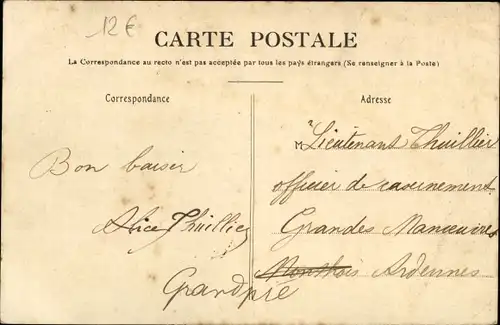 12€
CARTE POSTALE
La Correspondance au recto n'est pas acceptée par tous les pays étrangers (Se renseigner à la Poste)
Correspondance
Adresse
Bon baiser
Alice Thuillier
M r Lieutenant Thuillier
officier de casernement
Grandes Manœuvres
Monthois Ardennes
Grandpré